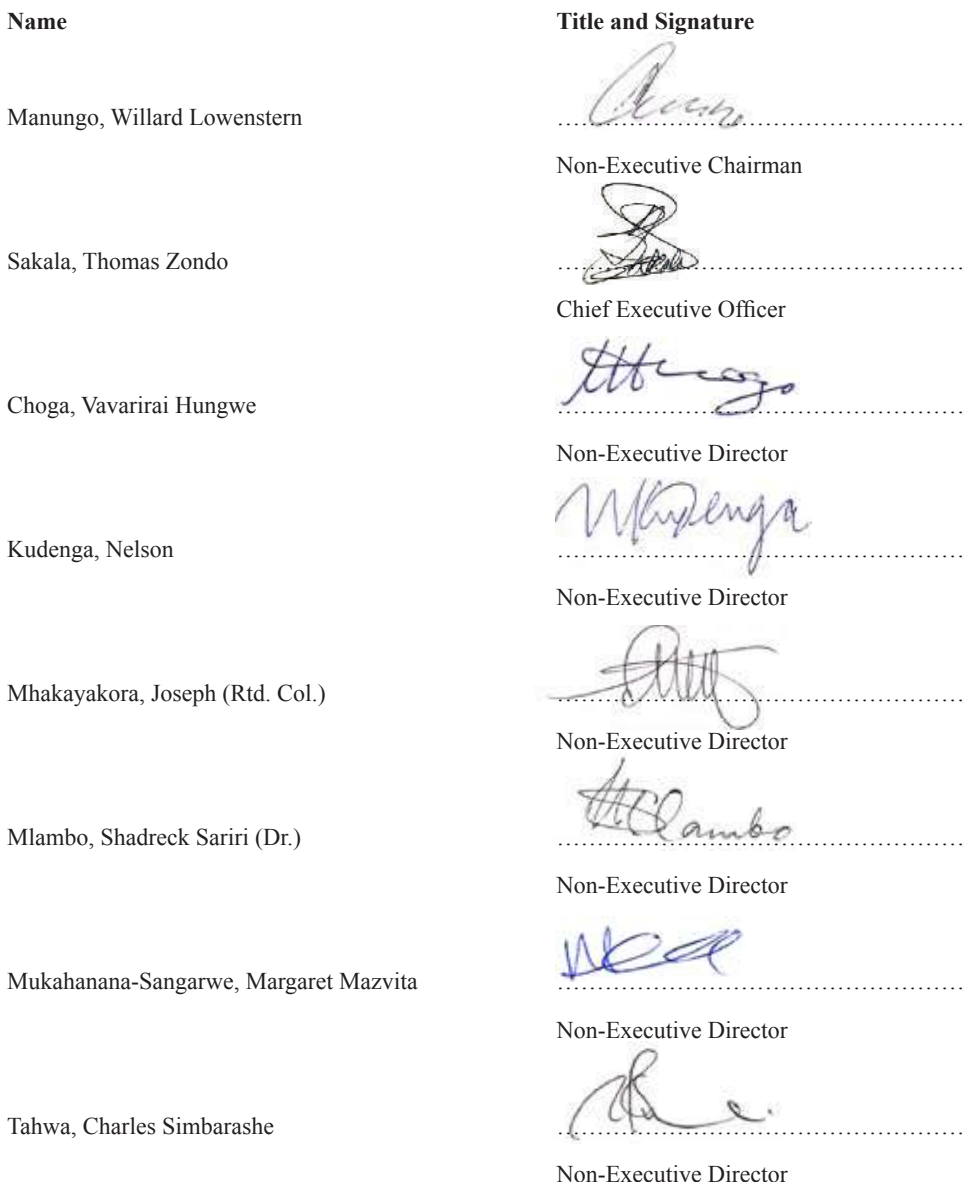 Name Title and Signature
Manungo, Willard Lowenstern ……………………………………………
Non-Executive Chairman
Sakala, Thomas Zondo ……………………………………………
Chief Executive Officer
Choga, Vavarirai Hungwe ……………………………………………
Non-Executive Director
Kudenga, Nelson ……………………………………………
Non-Executive Director
Mhakayakora, Joseph (Rtd. Col.) ……………………………………………
Non-Executive Director
Mlambo, Shadreck Sariri (Dr.) ……………………………………………
Non-Executive Director
Mukahanana-Sangarwe, Margaret Mazvita ……………………………………………
Non-Executive Director
Tahwa, Charles Simbarashe ……………………………………………
Non-Executive Director